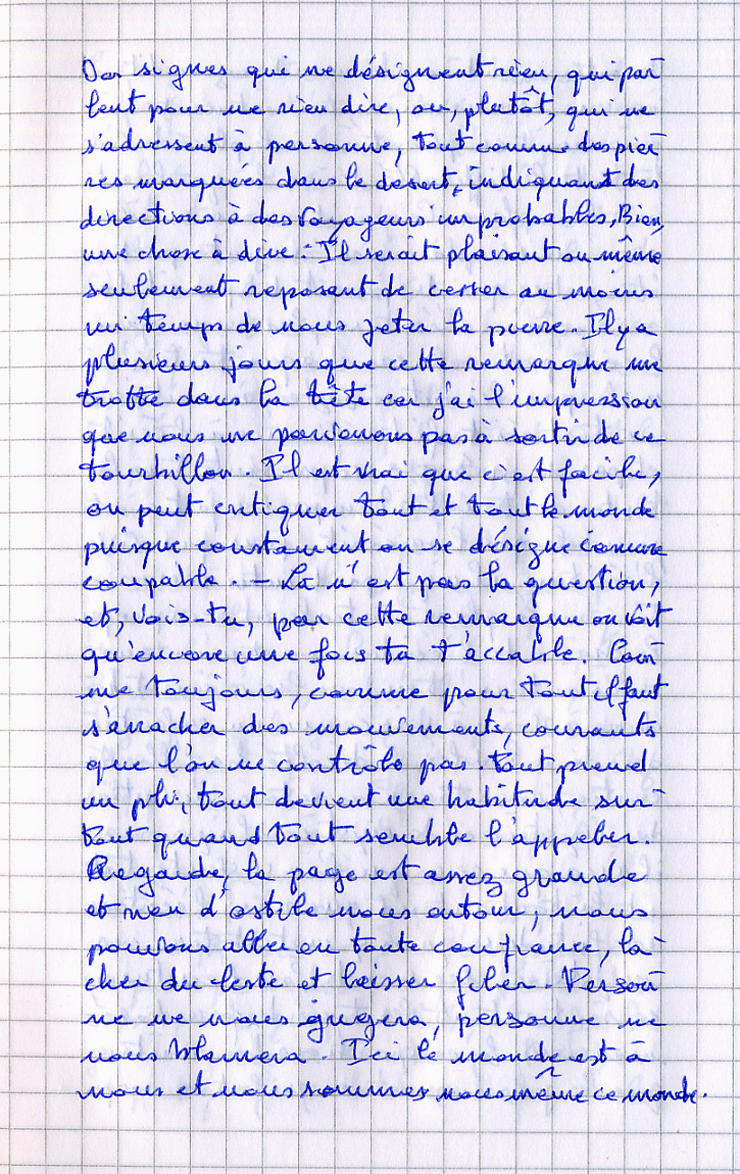 Des signes qui ne désignent rien, qui par-
lent pour ne rien dire, ou, plutôt, qui ne
s'adressent à personne, tout comme des pier-
res marquées dans le désert, indiquant des
directions à des voyageurs improbables, Bien,
une chose à dire : Il serait plaisant ou même
seulement reposant de cesser au moins
un temps de nous jeter la pierre. Il y a
plusieurs jours que cette remarque me
trotte dans la tête car j'ai l'impression
que nous ne parvenons pas à sortir de ce
tourbillon. Il est vrai que c'est facile,
on peut critiquer tout et tout le monde
puisque constament on se désigne comme
coupable. – Là n'est pas la question,
et, vois-tu, par cette remarque on voit
qu'encore une fois tu t'accable. Com-
me toujours, comme pour tout il faut
s'arracher des mouvements, courants
que l'on ne contrôle pas. tout prend
un pli, tout devient une habitude sur-
tout quand tout semble l'appeler.
Regarde, la page est assez grande
et rien d'ostile nous entour, nous
pouvons aller en toute confiance, lâ-
cher du leste et laisser filer. Person-
ne ne nous jugera, personne ne
nous blamera. Ici le monde est à
nous et nous sommes nous même ce monde.